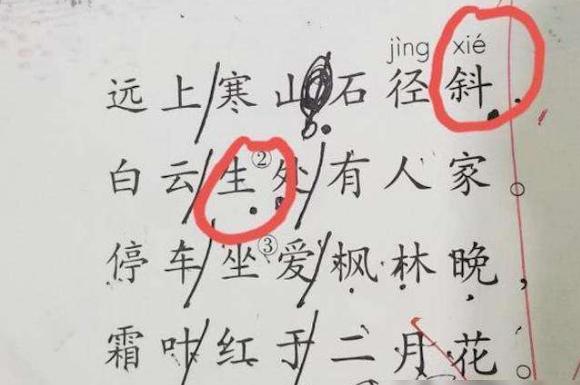 jìng xié
远上寒山石径斜，
白云生②处有人家。
停车坐③爱枫林晚，
霜叶红于二月花。